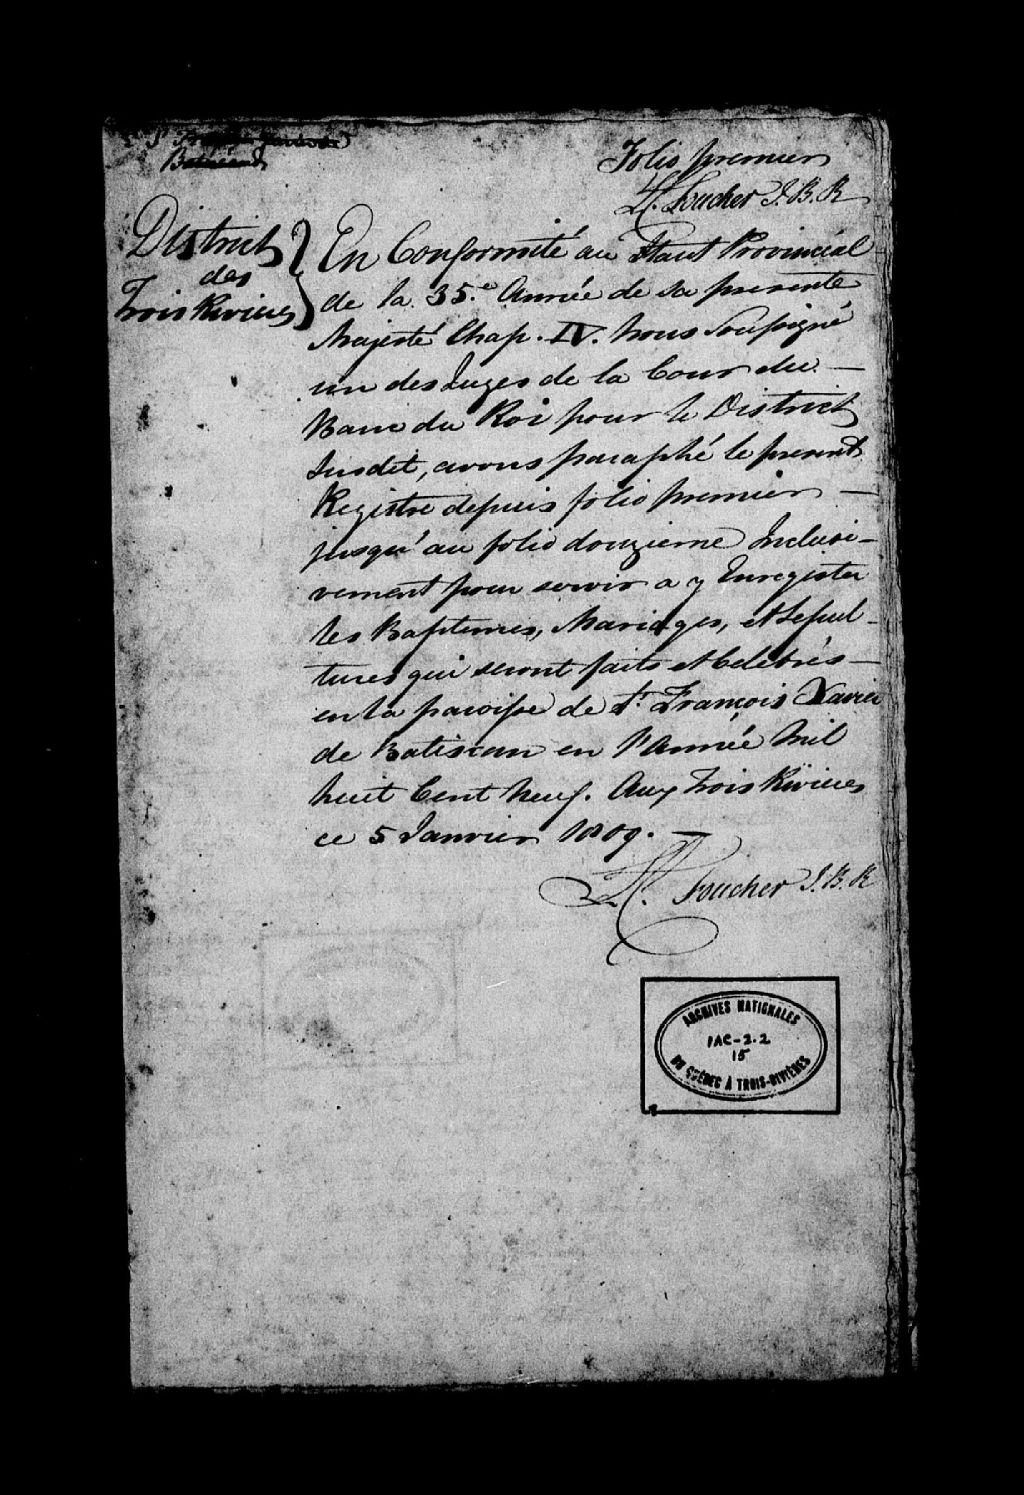 Folio premier
L. C. Foucher J. B. R
District
des
Trois Rivieres
En Conformité au Statut Provincial
de la 35.e Année de sa presente
Majesté Chap. IV. Nous Soussigné
un des Juges de la Cour du —
Banc du Roi pour le District
susdit, avons paraphé le present
Registre depuis folio premier —
jusqu'au folio douzieme Inclusi-
vement pour servir a y Enregistrer
les Baptemes, Mariages, et Sepul-
tures qui seront faits et Celebrés —
en la paroisse de St. François Xavier
de Batiscan en l'Année Mil
huit Cent Neuf. Aux Trois Rivieres
ce 5 Janvier 1809. —
L. C. Foucher J. B. R
ARCHIVES NATIONALES
1AC-2.2
15
DU QUÉBEC À TROIS-RIVIÈRES